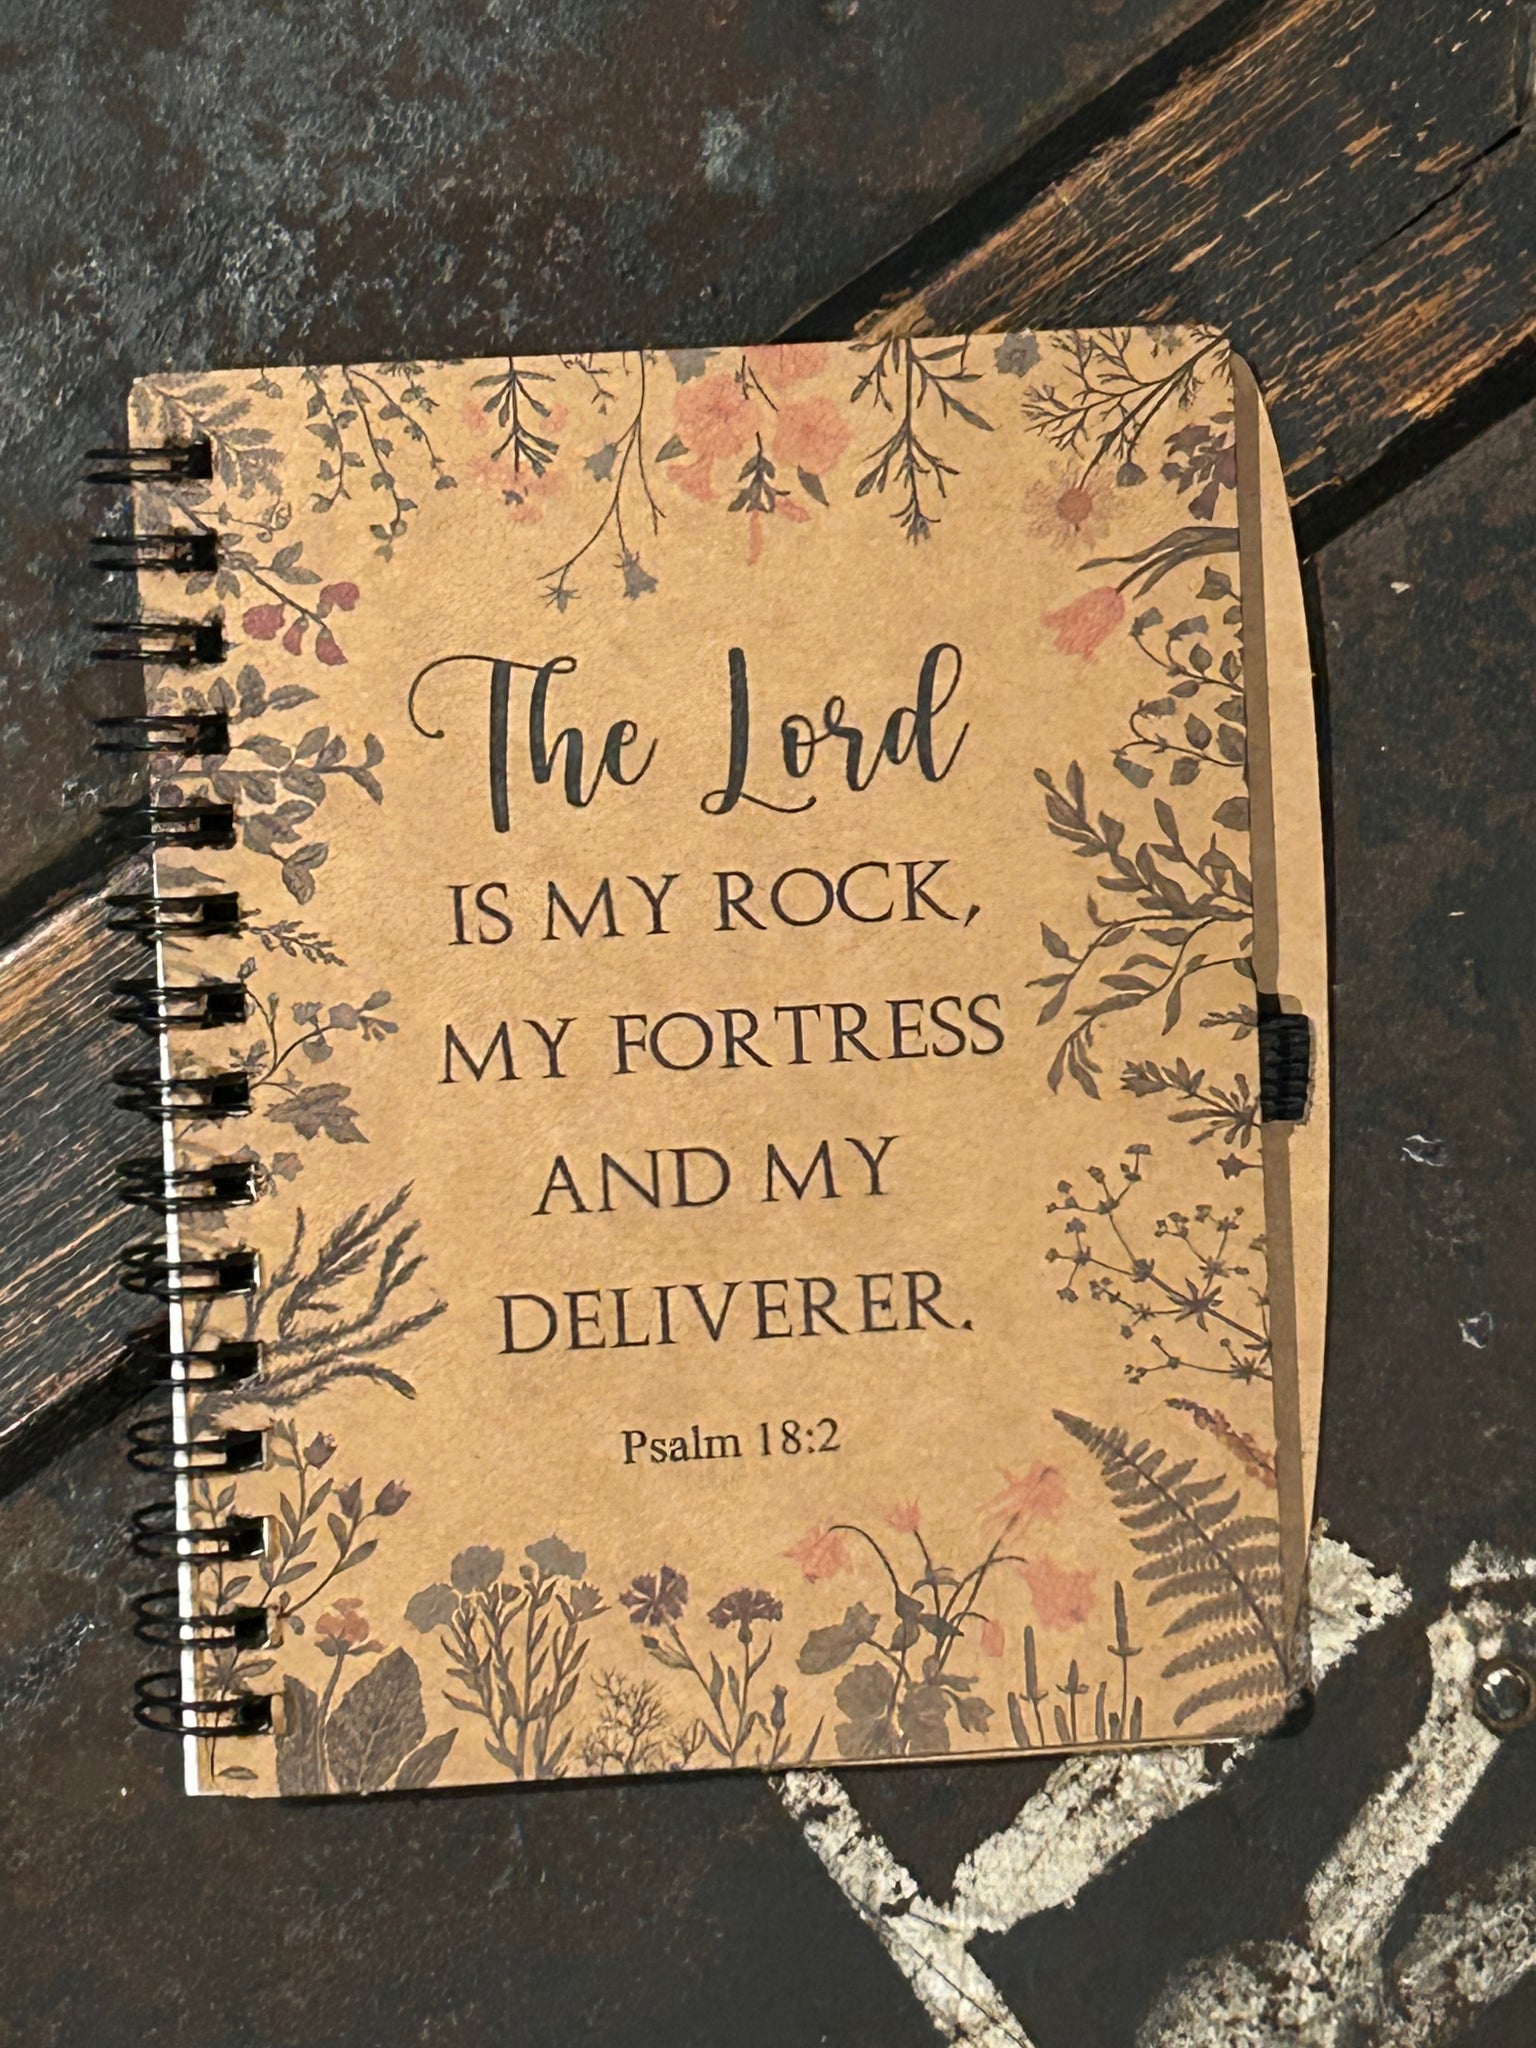 The Lord
IS MY ROCK,
MY FORTRESS
AND MY
DELIVERER.
Psalm 18:2